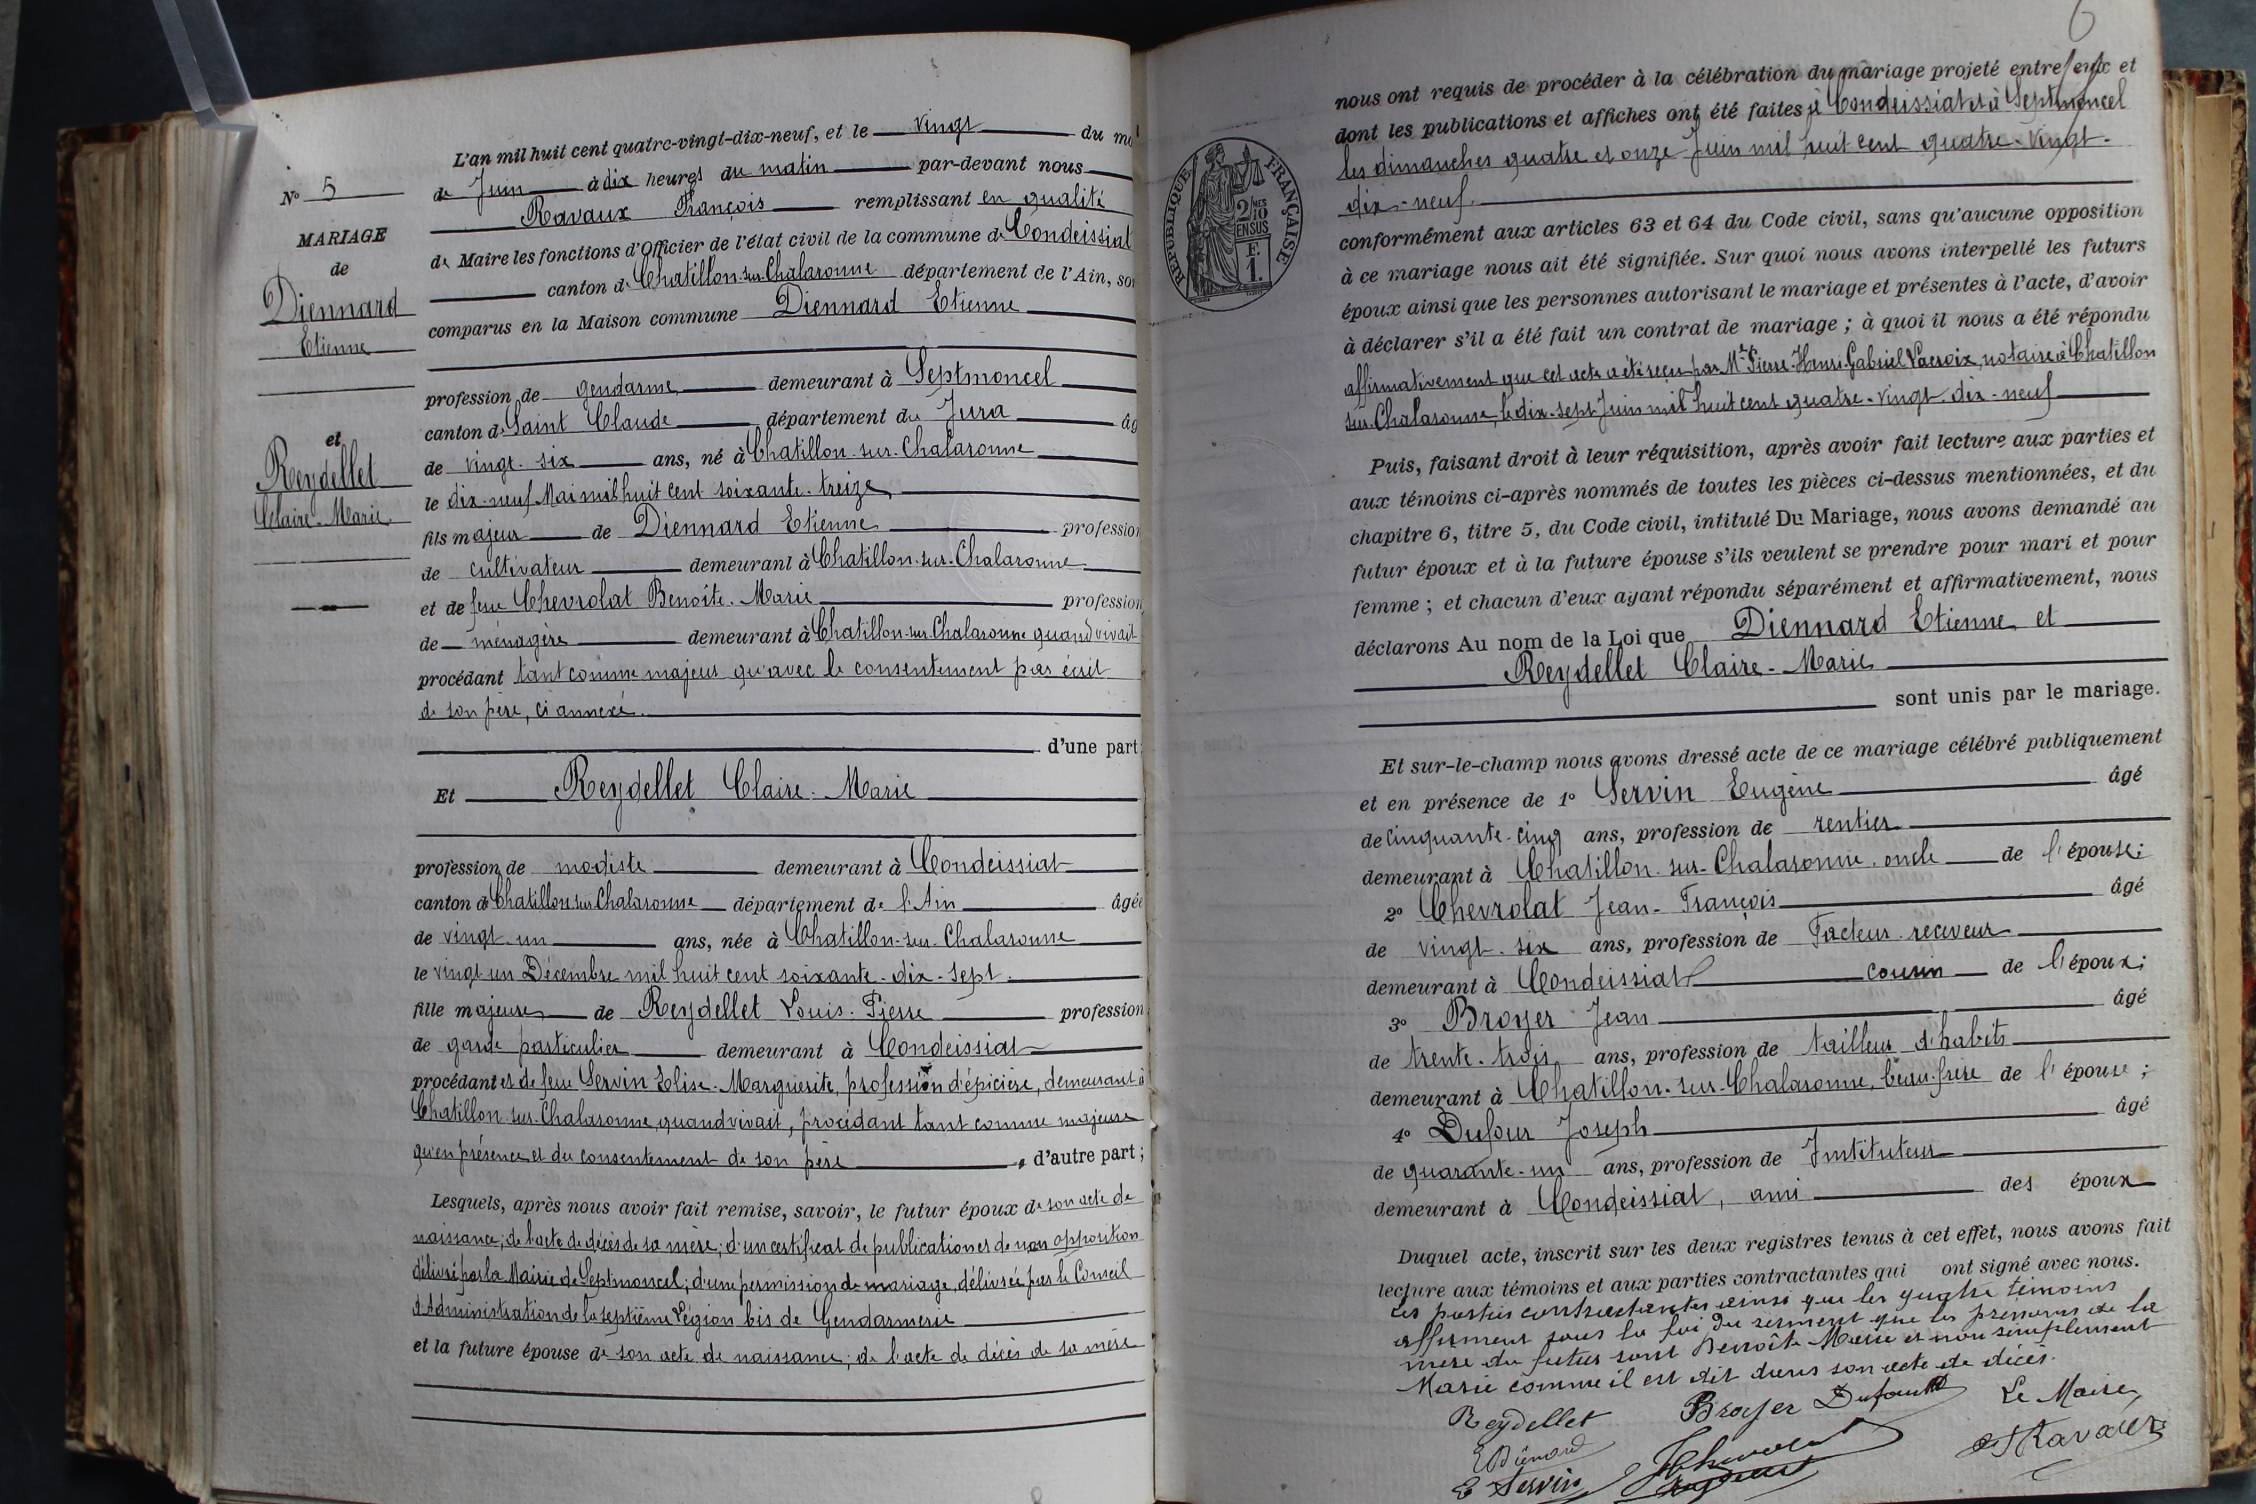 N° 5
MARIAGE
de
Diennard
Etienne
et
Reydellet
Claire-Marie
L'an mil huit cent quatre-vingt-dix-neuf, et le vingt du mo
de Juin à dix heures du matin par-devant nous
Ravaux François remplissant en qualité
de Maire les fonctions d'Officier de l'état civil de la commune de Condeissiat
canton de Chatillon-sur-Chalaronne département de l'Ain, son
comparus en la Maison commune Diennard Etienne
profession de gendarme demeurant à Septmoncel
canton de Saint Claude département du Jura âg
de vingt-six ans, né à Chatillon-sur-Chalaronne
le dix-neuf Mai mil huit cent soixante-treize
fils majeur de Diennard Etienne profession
de cultivateur demeurant à Chatillon-sur-Chalaronne
et de feue Chevrolat Benoîte-Marie profession
de ménagère demeurant à Chatillon-sur-Chalaronne quand vivait
procédant tant comme majeur qu'avec le consentement par écrit
de son père, ci annexé.
d'une part;
Et Reydellet Claire-Marie
profession de modiste demeurant à Condeissiat
canton de Chatillon sur Chalaronne département de l'Ain âgée
de vingt-un ans, née à Chatillon-sur-Chalaronne
le vingt un Décembre mil huit cent soixante-dix-sept.
fille majeure de Reydellet Louis-Pierre profession
de garde particulier demeurant à Condeissiat
procédant et de feue Servin Elise-Marguerite, profession d'épicière, demeurant à
Chatillon-sur-Chalaronne quand vivait, procédant tant comme majeure
qu'en présence et du consentement de son père d'autre part;
Lesquels, après nous avoir fait remise, savoir, le futur époux de son acte de
naissance; de l'acte de décès de sa mère; d'un certificat de publication et de non opposition
délivré par la Mairie de Septmoncel; d'une permission de mariage, délivrée par le Conseil
d'Administration de la septième Légion bis de Gendarmerie
et la future épouse de son acte de naissance; de l'acte de décès de sa mère
6
RÉPUBLIQUE FRANÇAISE
2/10 MES
EN SUS
F.
1.
nous ont requis de procéder à la célébration du mariage projeté entre eux et
dont les publications et affiches ont été faites à Condeissiat et à Septmoncel
les dimanches quatre et onze Juin mil huit cent quatre-vingt-
dix-neuf.
conformément aux articles 63 et 64 du Code civil, sans qu'aucune opposition
à ce mariage nous ait été signifiée. Sur quoi nous avons interpellé les futurs
époux ainsi que les personnes autorisant le mariage et présentes à l'acte, d'avoir
à déclarer s'il a été fait un contrat de mariage; à quoi il nous a été répondu
affirmativement que cet acte a été reçu par Me Pierre-Henri-Gabriel Lacroix, notaire à Chatillon
sur-Chalaronne, le dix-sept Juin mil huit cent quatre-vingt-dix-neuf
Puis, faisant droit à leur réquisition, après avoir fait lecture aux parties et
aux témoins ci-après nommés de toutes les pièces ci-dessus mentionnées, et du
chapitre 6, titre 5, du Code civil, intitulé Du Mariage, nous avons demandé au
futur époux et à la future épouse s'ils veulent se prendre pour mari et pour
femme; et chacun d'eux ayant répondu séparément et affirmativement, nous
déclarons Au nom de la Loi que Diennard Etienne et
Reydellet Claire-Marie
sont unis par le mariage.
Et sur-le-champ nous avons dressé acte de ce mariage célébré publiquement
et en présence de 1° Servin Eugène âgé
de cinquante-cinq ans, profession de rentier
demeurant à Chatillon-sur-Chalaronne, oncle de l'épouse;
2° Chevrolat Jean-François âgé
de vingt-six ans, profession de Facteur-receveur
demeurant à Condeissiat cousin de l'époux;
3° Broyer Jean âgé
de trente-trois ans, profession de tailleur d'habits
demeurant à Chatillon-sur-Chalaronne, beau-frère de l'épouse;
4° Dufour Joseph âgé
de quarante-un ans, profession de Instituteur
demeurant à Condeissiat, ami des époux
Duquel acte, inscrit sur les deux registres tenus à cet effet, nous avons fait
lecture aux témoins et aux parties contractantes qui ont signé avec nous.
Les parties contractantes ainsi que les quatre témoins
affirment sous la foi du serment que les prénoms de la
mère du futur sont Benoîte Marie et non simplement
Marie comme il est dit dans son acte de décès.
Reydellet Broyer Dufour Le Maire
E Diénard Chevrolat Ravaux
E Servin